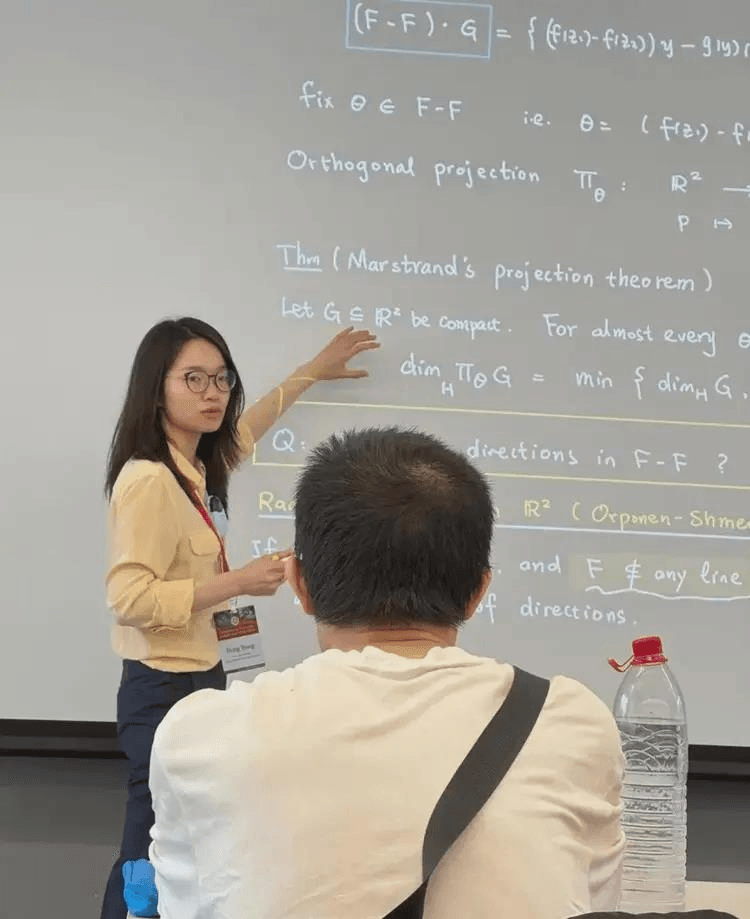 (F-F)·G = { (f(z₁)-f(z₂)) y - g(y)
fix θ ∈ F-F i.e. θ = (f(z₁) - f
Orthogonal projection Π_θ : ℝ² →
P ↦
Thm (Marstrand's projection theorem)
Let G ⊆ ℝ² be compact. For almost every θ
dim_H Π_θ G = min { dim_H G,
Q: directions in F-F ?
ℝ² (Orponen-Shme
If and F ⊄ any line
of directions.